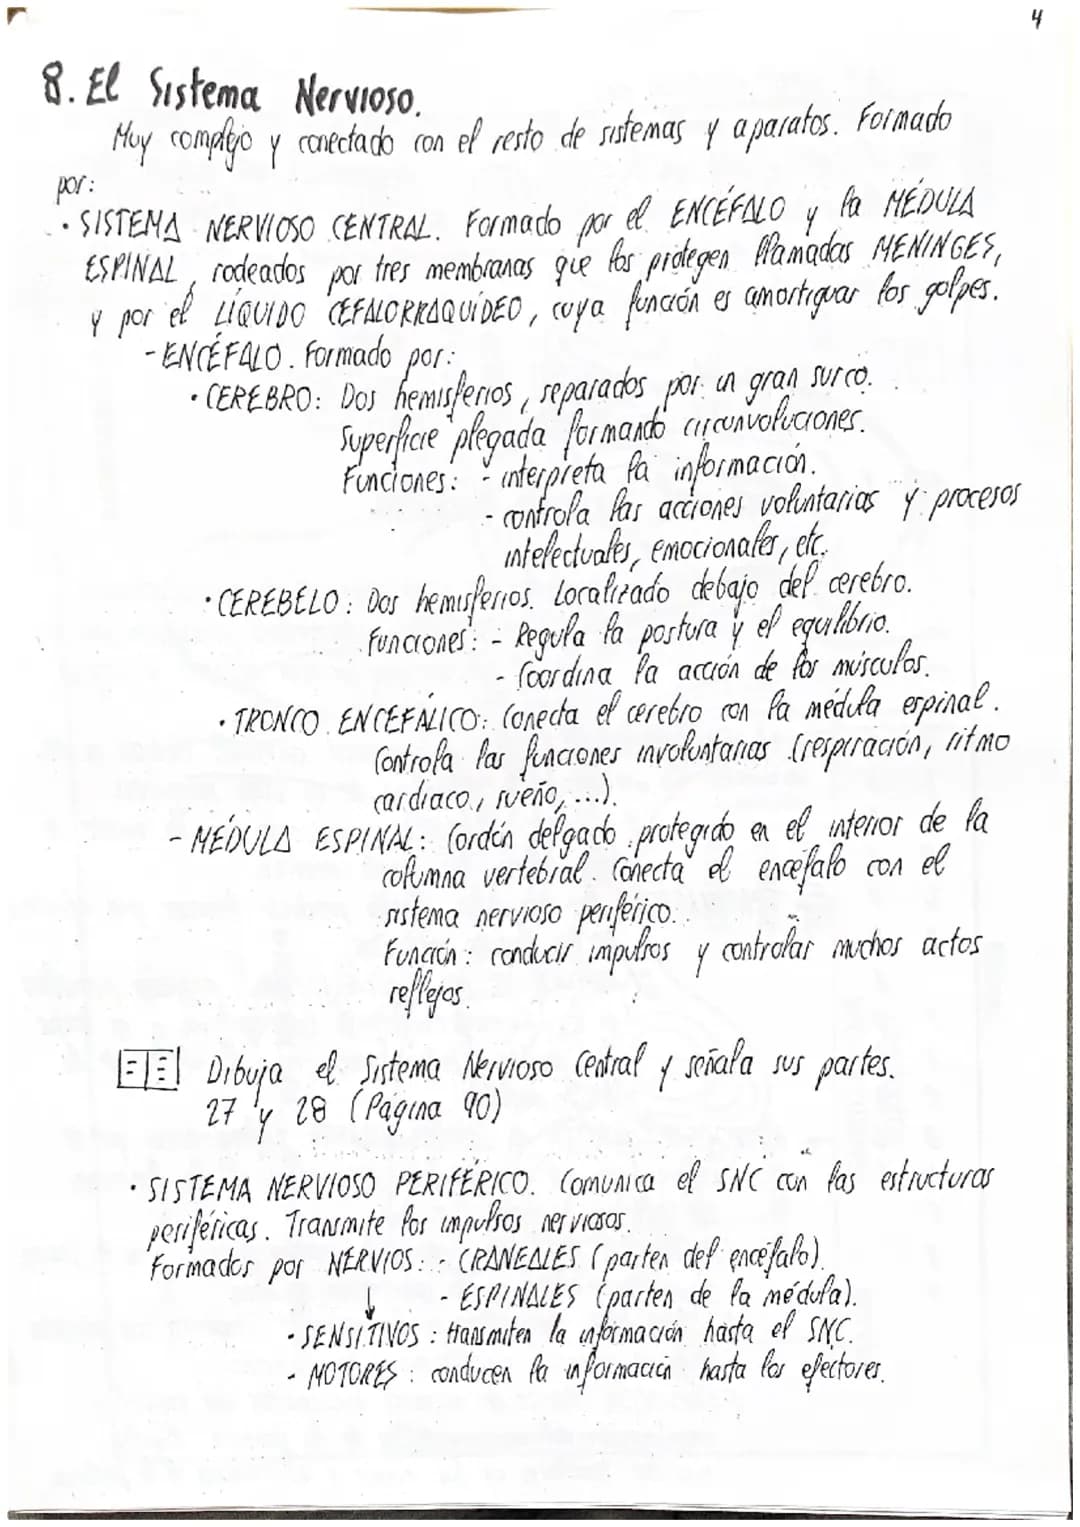 4
8. El Sistema Nervioso.
Muy complejo y conectado con el resto de sistemas y aparatos. Formado
por:
· SISTEMA NERVIOSO CENTRAL. Formado por el ENCÉFALO y la MÉDULA
ESPINAL, rodeados por tres membranas que los protegen llamadas MENINGES,
y por el LÍQUIDO CEFALORRAQUÍDEO, cuya función es amortiguar los golpes.
- ENCÉFALO. Formado por:
· CEREBRO: Dos hemisferios, separados por un gran surco.
Superficie plegada formando circunvoluciones.
Funciones: - interpreta la información.
- controla las acciones voluntarias y procesos
intelectuales, emocionales, etc.
· CEREBELO: Dos hemisferios. Localizado debajo del cerebro.
Funciones: - Regula la postura y el equilibrio.
- Coordina la acción de los músculos.
· TRONCO ENCEFÁLICO: Conecta el cerebro con la médula espinal.
Controla las funciones involuntarias (respiración, ritmo
cardiaco, sueño, ...).
- MÉDULA ESPINAL: Cordón delgado protegido en el interior de la
columna vertebral. Conecta el encéfalo con el
sistema nervioso periférico.
Función: conducir impulsos y controlar muchos actos
reflejos.
Dibuja el Sistema Nervioso Central y señala sus partes.
27 y 28 (Página 90)
· SISTEMA NERVIOSO PERIFÉRICO. Comunica el SNC con las estructuras
periféricas. Transmite los impulsos nerviosos.
Formados por NERVIOS: - CRANEALES (parten del encéfalo).
- ESPINALES (parten de la médula).
· SENSITIVOS: transmiten la información hasta el SNC.
- MOTORES: conducen la información hasta los efectores.